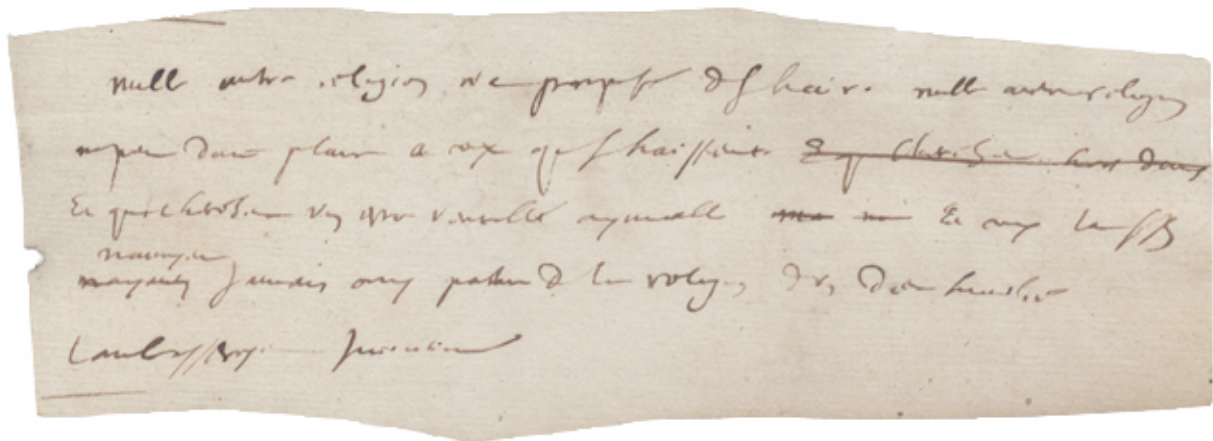 nulle autre religion n'a proposé de se hair. nulle autre religion
ne peut donc plaire a ceux qui se haissent Et qui cherchent dans
Et qui cherchent un estre veritablem aymable Et ceux la s'ils
n'avoyent
n'ayants jamais ouy parler de la religion d'un dieu humilié
l'ambrasseroyent incontinent